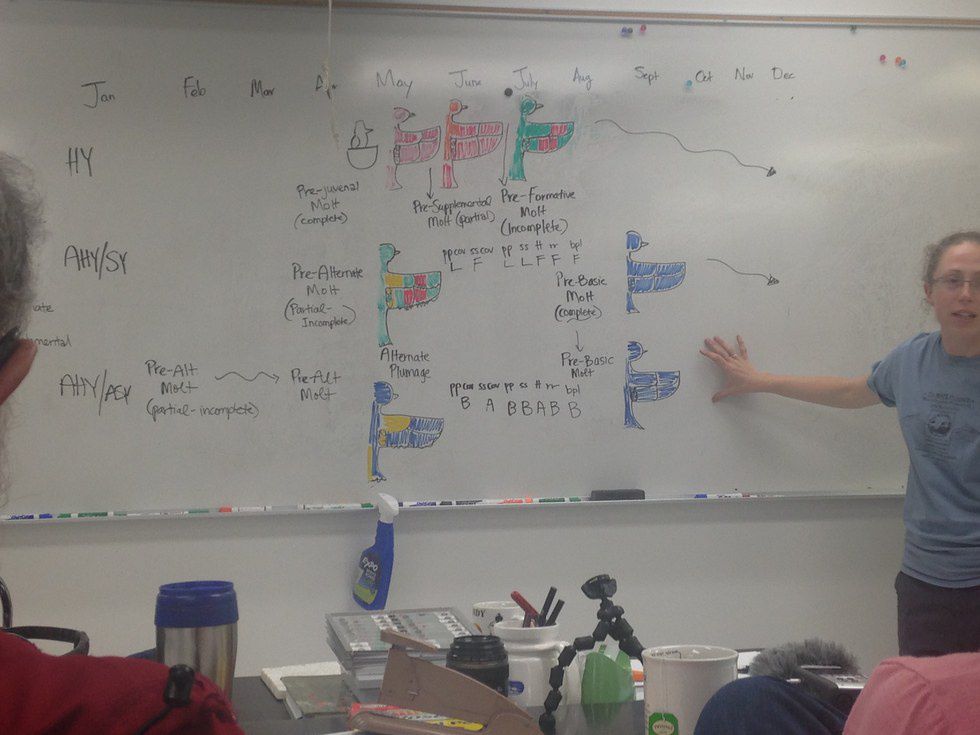 Jan Feb Mar May June July Aug Sept Oct Nov Dec
HY
Pre-juvenal
Molt
(complete)
Pre-Supplemental
Molt (partial)
Pre-Formative
Molt
(Incomplete)
AHY/SY
Pre-Alternate
Molt
(Partial-
Incomplete)
pp cov ss cov pp ss tt rr bpl
L F L L F F F
Pre-Basic
Molt
(complete)
Alternate
Plumage
AHY/ASY
Pre-Alt
Molt
(partial-incomplete)
Pre-Alt
Molt
pp cov ss cov pp ss tt rr bpl
B A B B A B B
Pre-Basic
Molt
EXPO